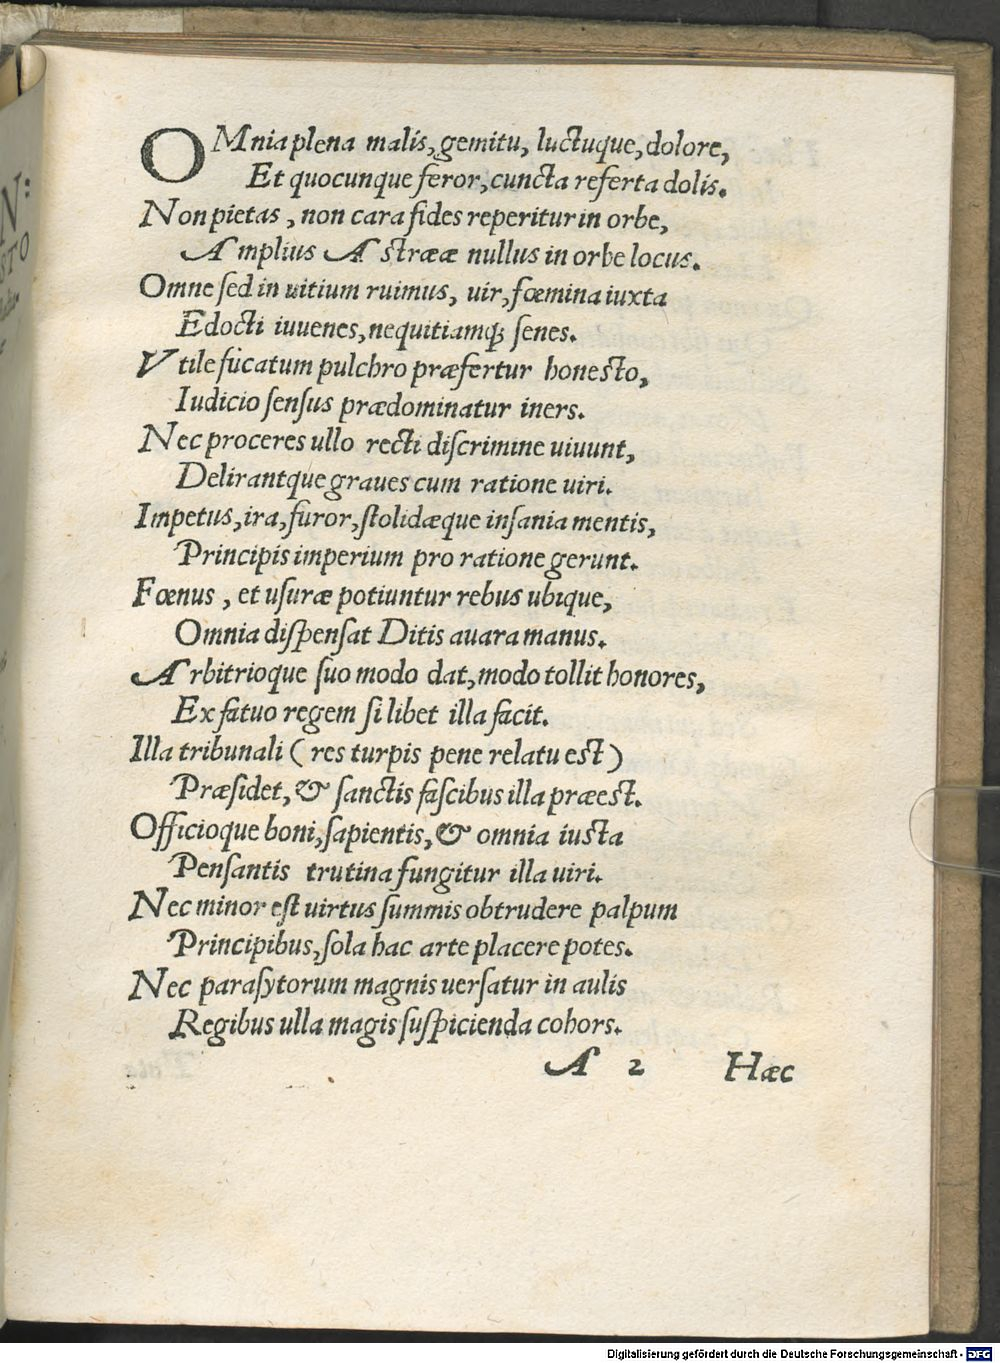 OMnia plena malis, gemitu, luctuque, dolore,
Et quocunque feror, cuncta referta dolis.
Non pietas, non cara fides reperitur in orbe,
Amplius Astrææ nullus in orbe locus.
Omne sed in uitium ruimus, uir, fœmina iuxta
Edocti iuuenes, nequitiamq; senes.
Vtile fucatum pulchro præfertur honesto,
Iudicio sensus prædominatur iners.
Nec proceres ullo recti discrimine uiuunt,
Delirantque graues cum ratione uiri.
Impetus, ira, furor, stolidæque insania mentis,
Principis imperium pro ratione gerunt.
Fœnus, et usuræ potiuntur rebus ubique,
Omnia dispensat Ditis auara manus.
Arbitrioque suo modo dat, modo tollit honores,
Ex fatuo regem si libet illa facit.
Illa tribunali (res turpis pene relatu est)
Præsidet, & sanctis fascibus illa præest.
Officioque boni, sapientis, & omnia iusta
Pensantis trutina fungitur illa uiri.
Nec minor est uirtus summis obtrudere palpum
Principibus, sola hac arte placere potes.
Nec parasytorum magnis uersatur in aulis
Regibus ulla magis suspicienda cohors.
A 2 Hæc
Digitalisierung gefördert durch die Deutsche Forschungsgemeinschaft - DFG